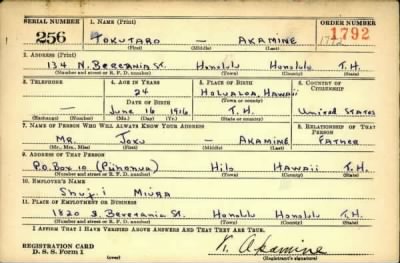 SERIAL NUMBER 1. NAME (Print) ORDER NUMBER
256 TOKUTARO — AKAMINE 1792
(First) (Middle) (Last)
2. ADDRESS (Print)
134 N. Beretania St. Honolulu Honolulu T.H.
(Number and street or R. F. D. number) (Town) (County) (State)
3. TELEPHONE 4. AGE IN YEARS 5. PLACE OF BIRTH 6. COUNTRY OF CITIZENSHIP
24 Holualoa, Hawaii
DATE OF BIRTH (Town or county)
— June 16 1916 T.H. United States
(Exchange) (Number) (Mo.) (Day) (Yr.) (State or country)
7. NAME OF PERSON WHO WILL ALWAYS KNOW YOUR ADDRESS 8. RELATIONSHIP OF THAT PERSON
Mr. Joku — Akamine Father
(Mr., Mrs., Miss) (First) (Middle) (Last)
9. ADDRESS OF THAT PERSON
P.O. Box 10 (Piihonua) Hilo Hawaii T.H.
(Number and street or R. F. D. number) (Town) (County) (State)
10. EMPLOYER'S NAME
Shuji Miura
11. PLACE OF EMPLOYMENT OR BUSINESS
1820 S. Beretania St. Honolulu Honolulu T.H.
(Number and street or R. F. D. number) (Town) (County) (State)
I AFFIRM THAT I HAVE VERIFIED ABOVE ANSWERS AND THAT THEY ARE TRUE.
REGISTRATION CARD
D. S. S. Form 1 (over) Akamine
(Registrant's signature)